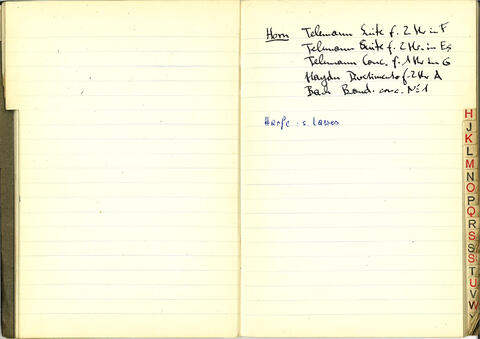 Horn Telemann Suite f. 2 Hr. in F
Telemann Suite f. 2 Hr. in Es
Telemann Conc. f. 1 Hr. in G
Haydn Divertimento f. 2 Hr A
Bach Brand. conc. No 1
Harfe s.
H
J
K
L
M
N
O
P
Q
R
S
S
S
T
U
V
W
Y